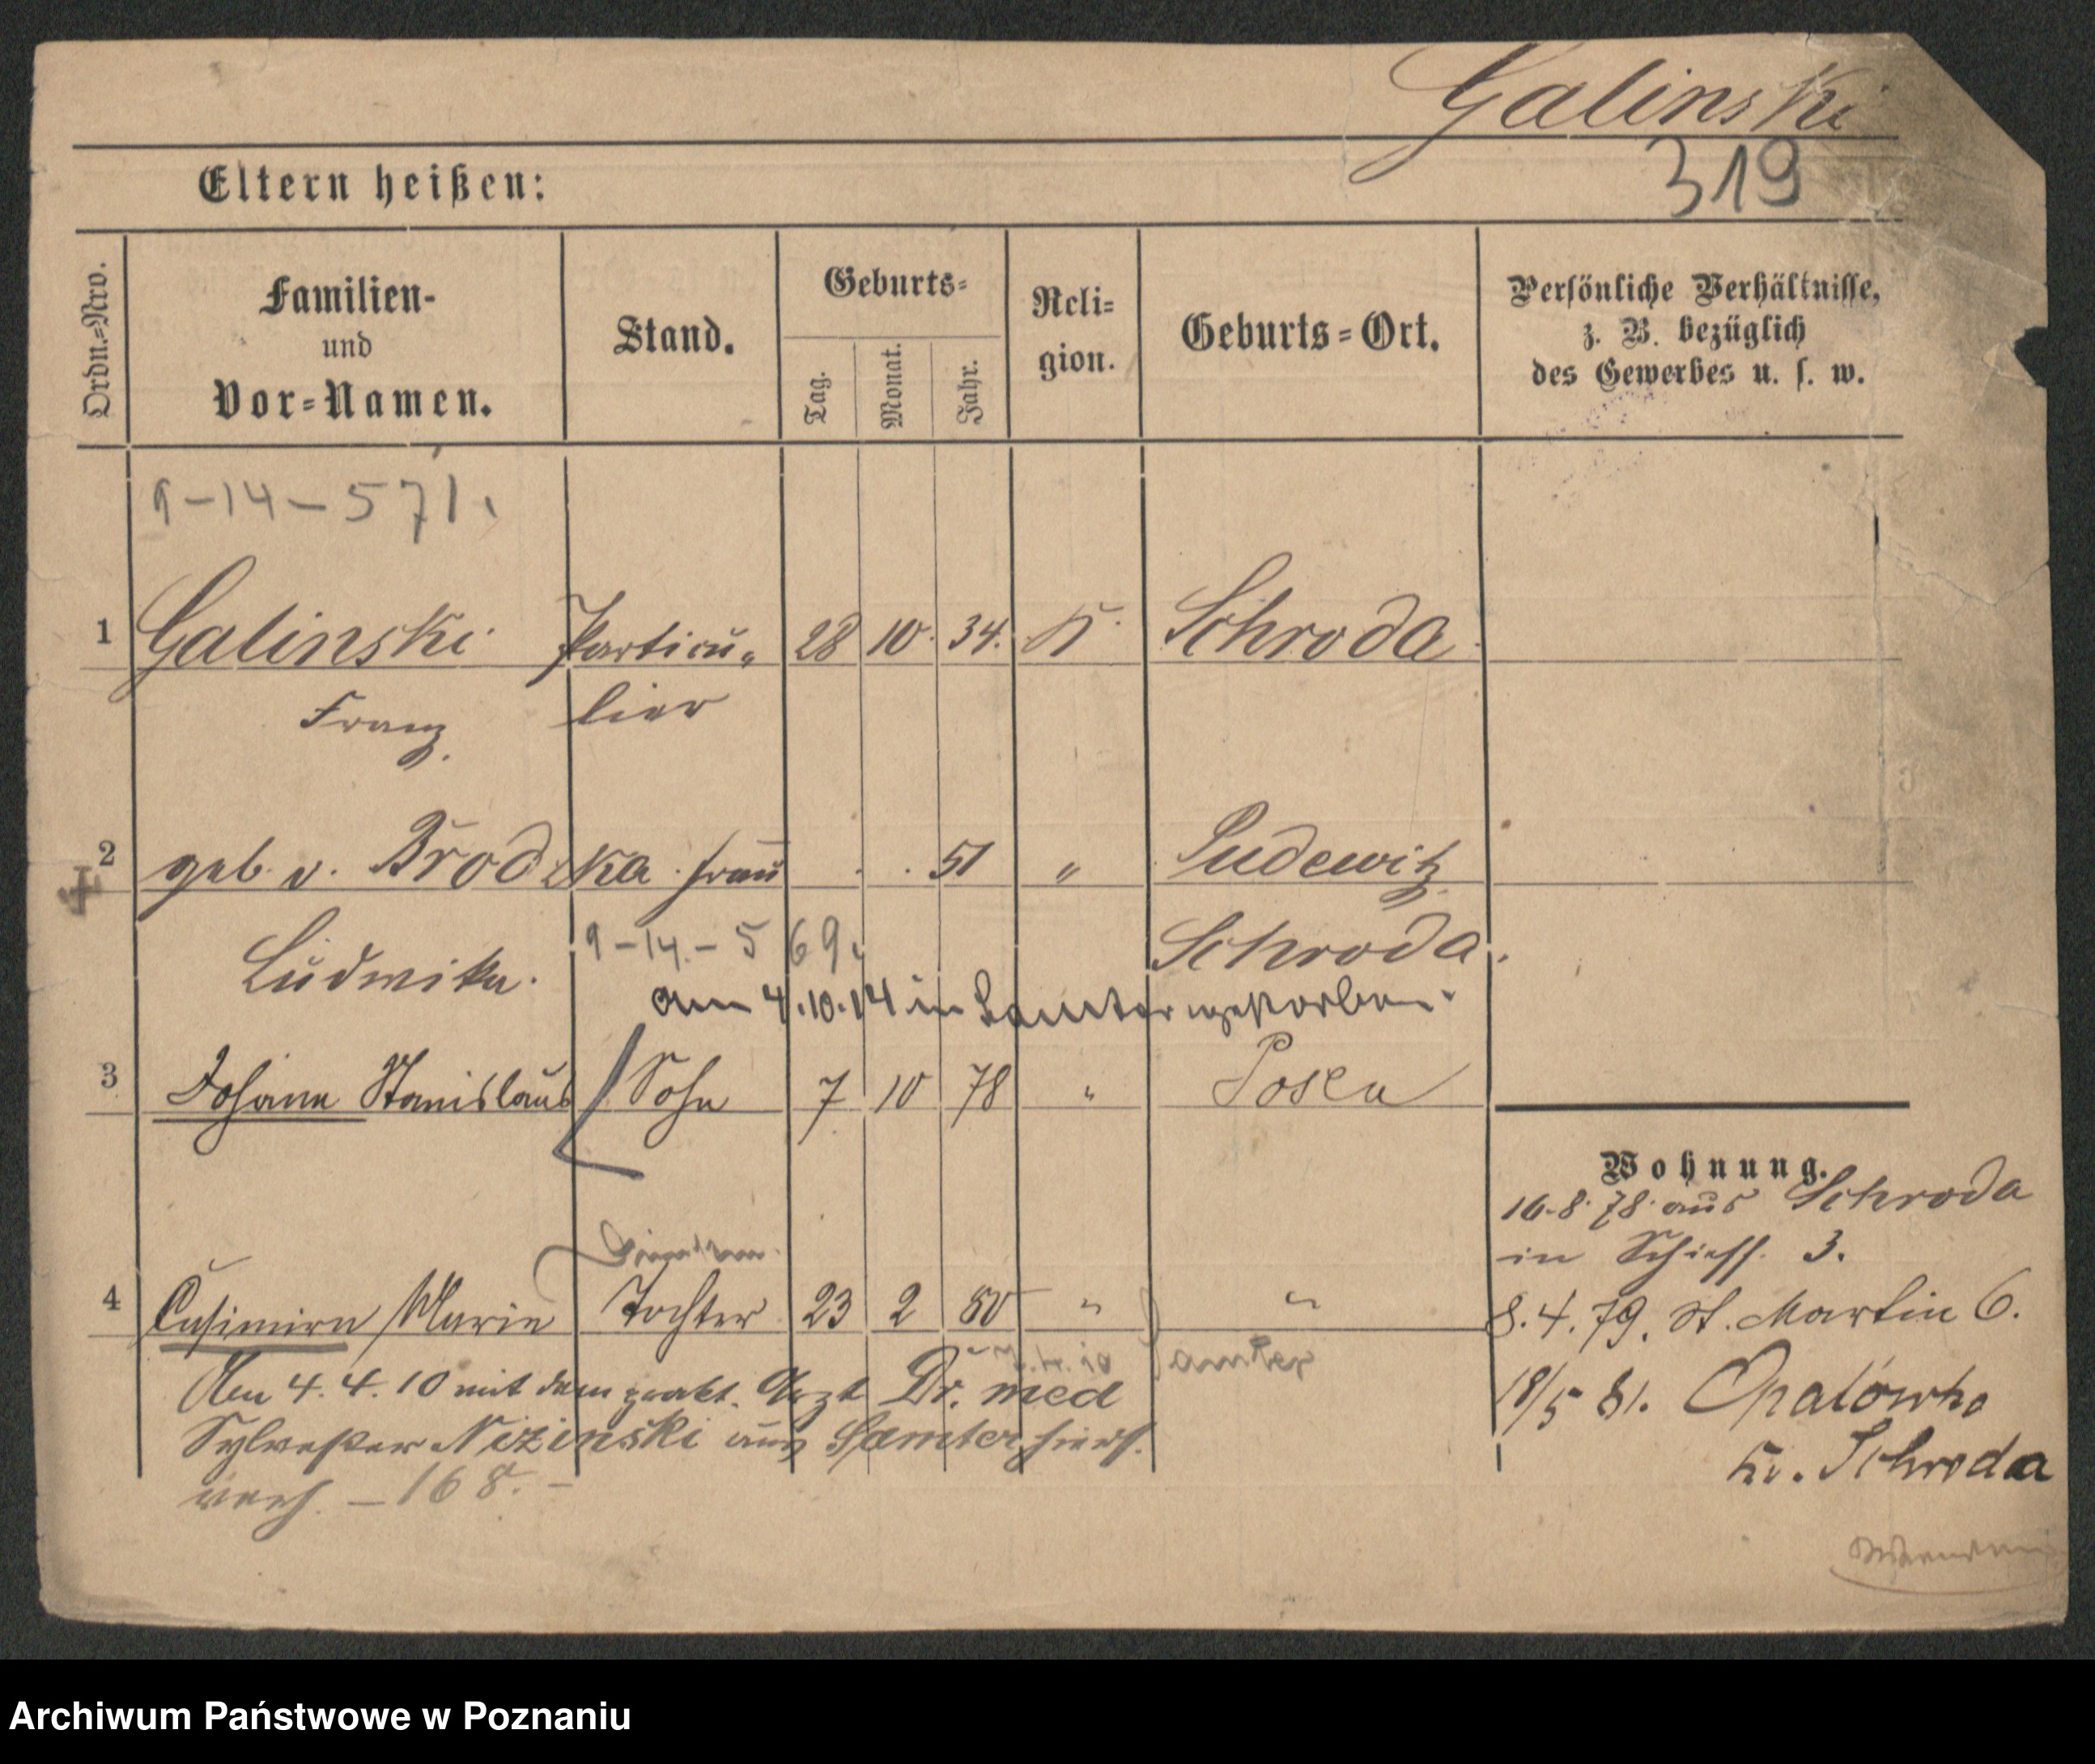 Galinski
319
Eltern heißen:
Ordn.=Nro.
Familien-
und
Vor=Namen.
Stand.
Geburts=
Tag.
Monat.
Jahr.
Reli=
gion.
Geburts=Ort.
Persönliche Verhältnisse,
z. B. bezüglich
des Gewerbes u. s. w.
9-14-571.
1 Galinski Particu„ 28 10. 34. K. Schroda
Franz. lier
2 geb. v. Brodzka. Frau 51 " Pudewitz
Ludwika. 9-14.-569. Schroda.
am 4.10.14 in Samter gestorben.
3 Johann Stanislaus Sohn 7 10 78 " Posen
Wohnung.
16.8.78. aus Schroda
in Schieß. 3.
4 Casimira Marie Tochter 23 2 80 " "
8.4.79. St. Martin 6.
Samter
Am 4.4.10 mit dem prakt. Arzt Dr. med
18/5 81. Opalówko
Sylvester Nizinski aus Samter hiers.
Kr. Schroda
verh. - 168. -
Archiwum Państwowe w Poznaniu